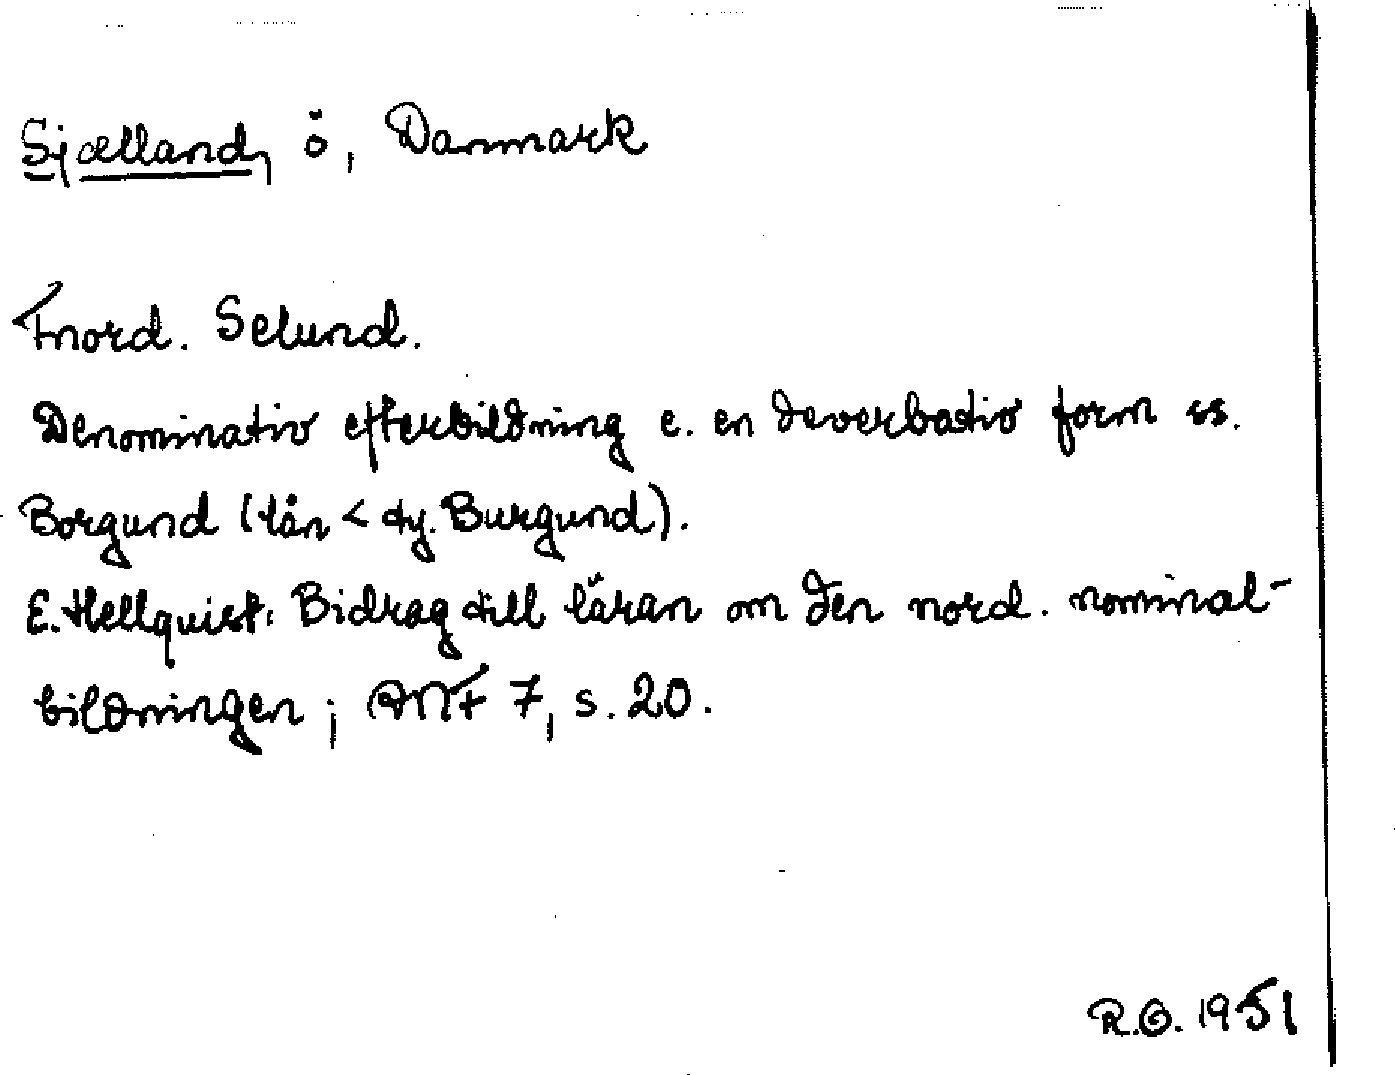 Sjælland, ö, Danmark
Fnord. Selund.
Denominativ efterbildning e. en deverbativ form ss.
Borgund (lån < ty. Burgund).
E. Hellquist: Bidrag till läran om den nord. nominal-
bildningen; ANF 7, s. 20.
R.O. 1951